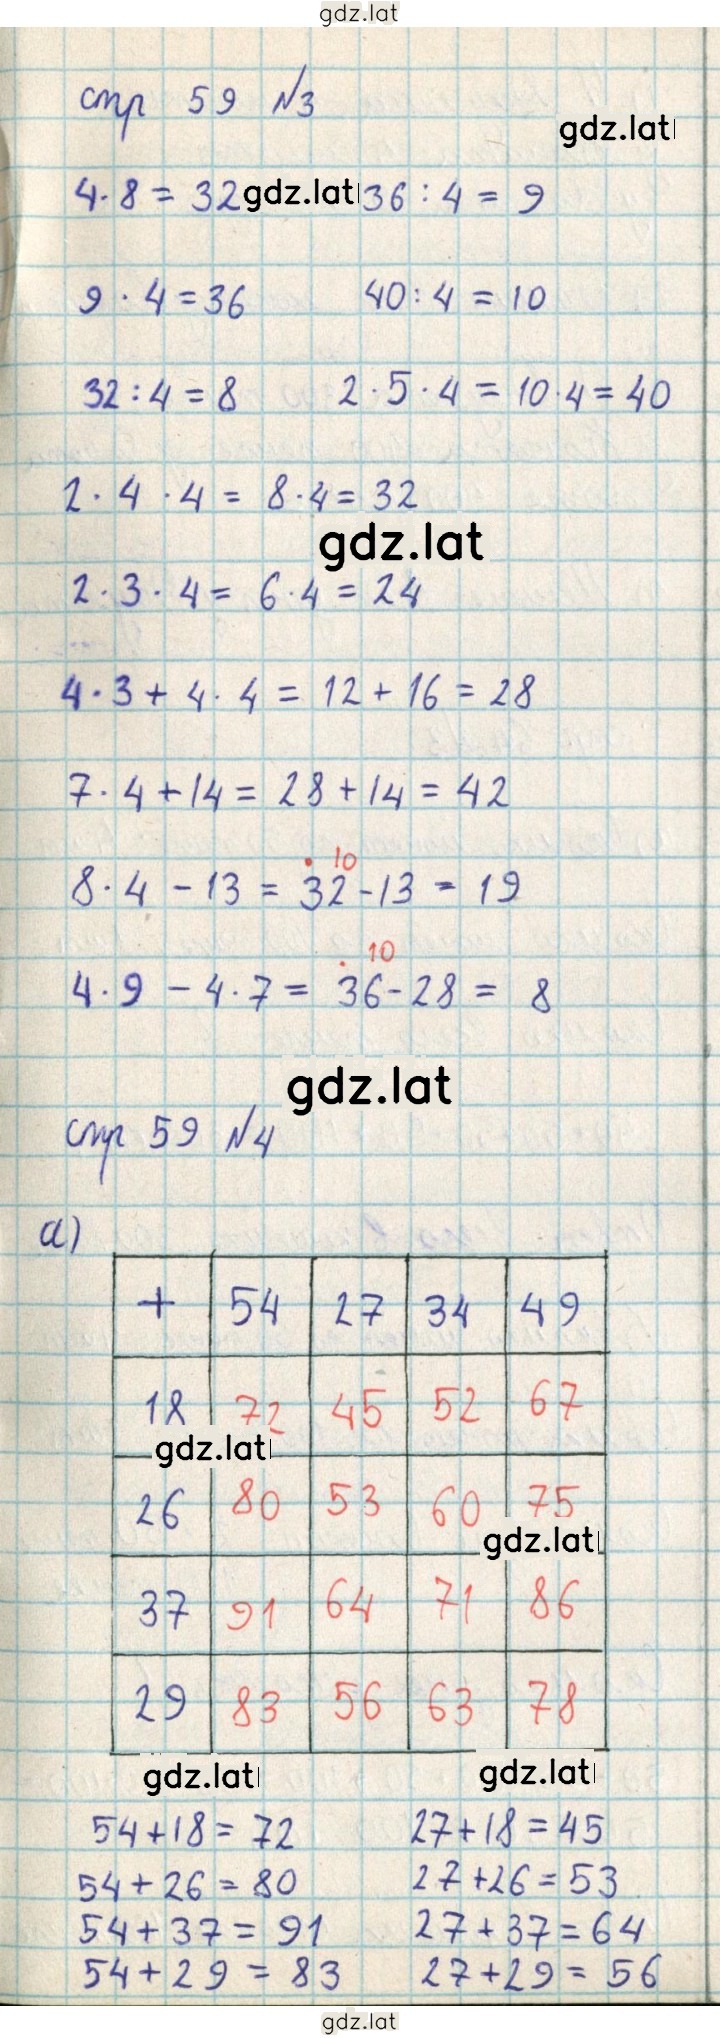 gdz.lat
стр 59 №3
gdz.lat
4·8 = 32 gdz.lat 36 : 4 = 9
9 · 4 = 36 40 : 4 = 10
32 : 4 = 8 2 · 5 · 4 = 10 · 4 = 40
2 · 4 · 4 = 8 · 4 = 32
gdz.lat
2 · 3 · 4 = 6 · 4 = 24
4 · 3 + 4 · 4 = 12 + 16 = 28
7 · 4 + 14 = 28 + 14 = 42
· 10
8 · 4 − 13 = 32 - 13 = 19
· 10
4 · 9 − 4 · 7 = 36 - 28 = 8
gdz.lat
стр 59 №4
а)
+ 54 27 34 49
18 72 45 52 67
gdz.lat
26 80 53 60 75
gdz.lat
37 91 64 71 86
29 83 56 63 78
gdz.lat gdz.lat
54 + 18 = 72 27 + 18 = 45
54 + 26 = 80 27 + 26 = 53
54 + 37 = 91 27 + 37 = 64
54 + 29 = 83 27 + 29 = 56
gdz.lat